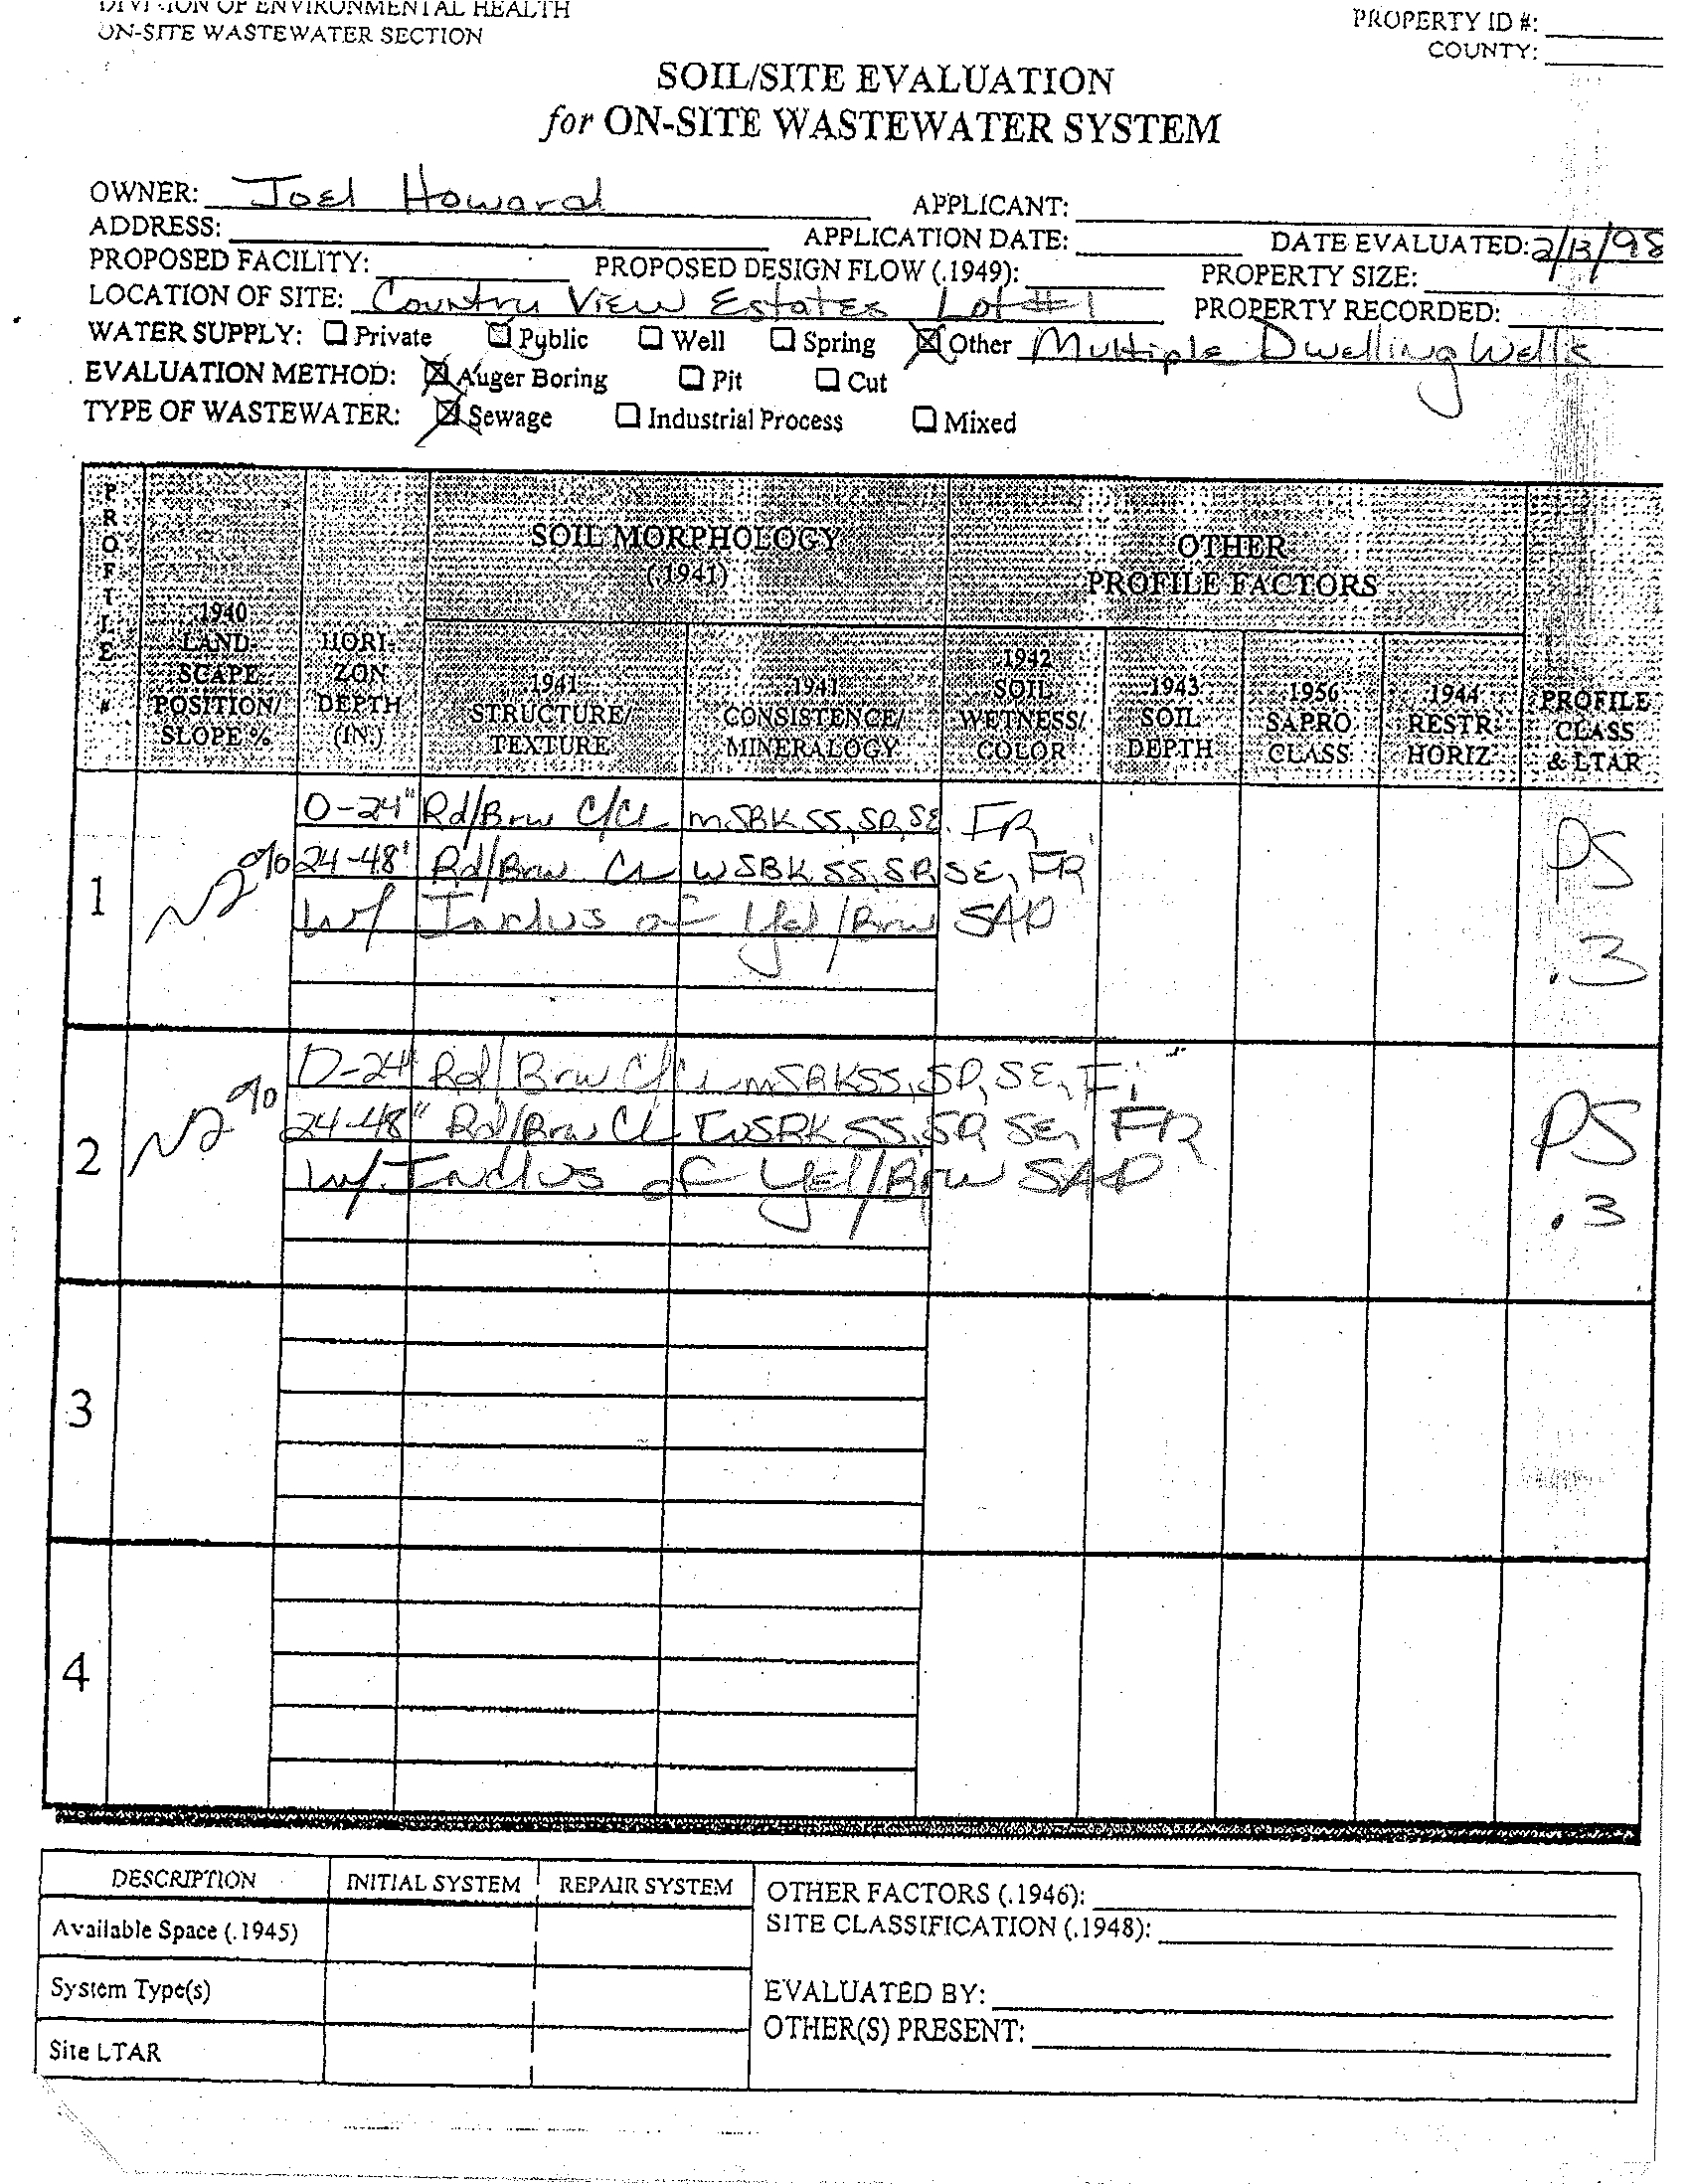 DIVISION OF ENVIRONMENTAL HEALTH
ON-SITE WASTEWATER SECTION
PROPERTY ID #:
COUNTY:
SOIL/SITE EVALUATION
for ON-SITE WASTEWATER SYSTEM
OWNER: Joel Howard APPLICANT:
ADDRESS: APPLICATION DATE: DATE EVALUATED: 2/13/98
PROPOSED FACILITY: PROPOSED DESIGN FLOW (.1949): PROPERTY SIZE:
LOCATION OF SITE: Country View Estates Lot #1 PROPERTY RECORDED:
WATER SUPPLY: Private Public Well Spring Other Multiple Dwelling Wells
EVALUATION METHOD: Auger Boring Pit Cut
TYPE OF WASTEWATER: Sewage Industrial Process Mixed
PROFILE #
.1940 LANDSCAPE POSITION/ SLOPE %
HORI-ZON DEPTH (IN.)
SOIL MORPHOLOGY (.1941)
.1941 STRUCTURE/ TEXTURE
.1941 CONSISTENCE/ MINERALOGY
OTHER PROFILE FACTORS
.1942 SOIL WETNESS/ COLOR
.1943 SOIL DEPTH
.1956 SAPRO CLASS
.1944 RESTR HORIZ
PROFILE CLASS & LTAR
1 ~2%
0-24" Rd/Brw C/CL mSBK SS, SP, SE, FR
24-48" Rd/Brw CL WSBK SS, SP, SE, FR
w/ Inclus of Yel/Brw SAP
PS
.3
2 ~2%
0-24" Rd/Brw C/CL mSBK SS, SP, SE, Fi
24-48" Rd/Brw CL WSBK SS, SP, SE, FR
w/ Inclus of Yel/Brw SAP
PS
.3
3
4
DESCRIPTION INITIAL SYSTEM REPAIR SYSTEM
Available Space (.1945)
System Type(s)
Site LTAR
OTHER FACTORS (.1946):
SITE CLASSIFICATION (.1948):
EVALUATED BY:
OTHER(S) PRESENT: